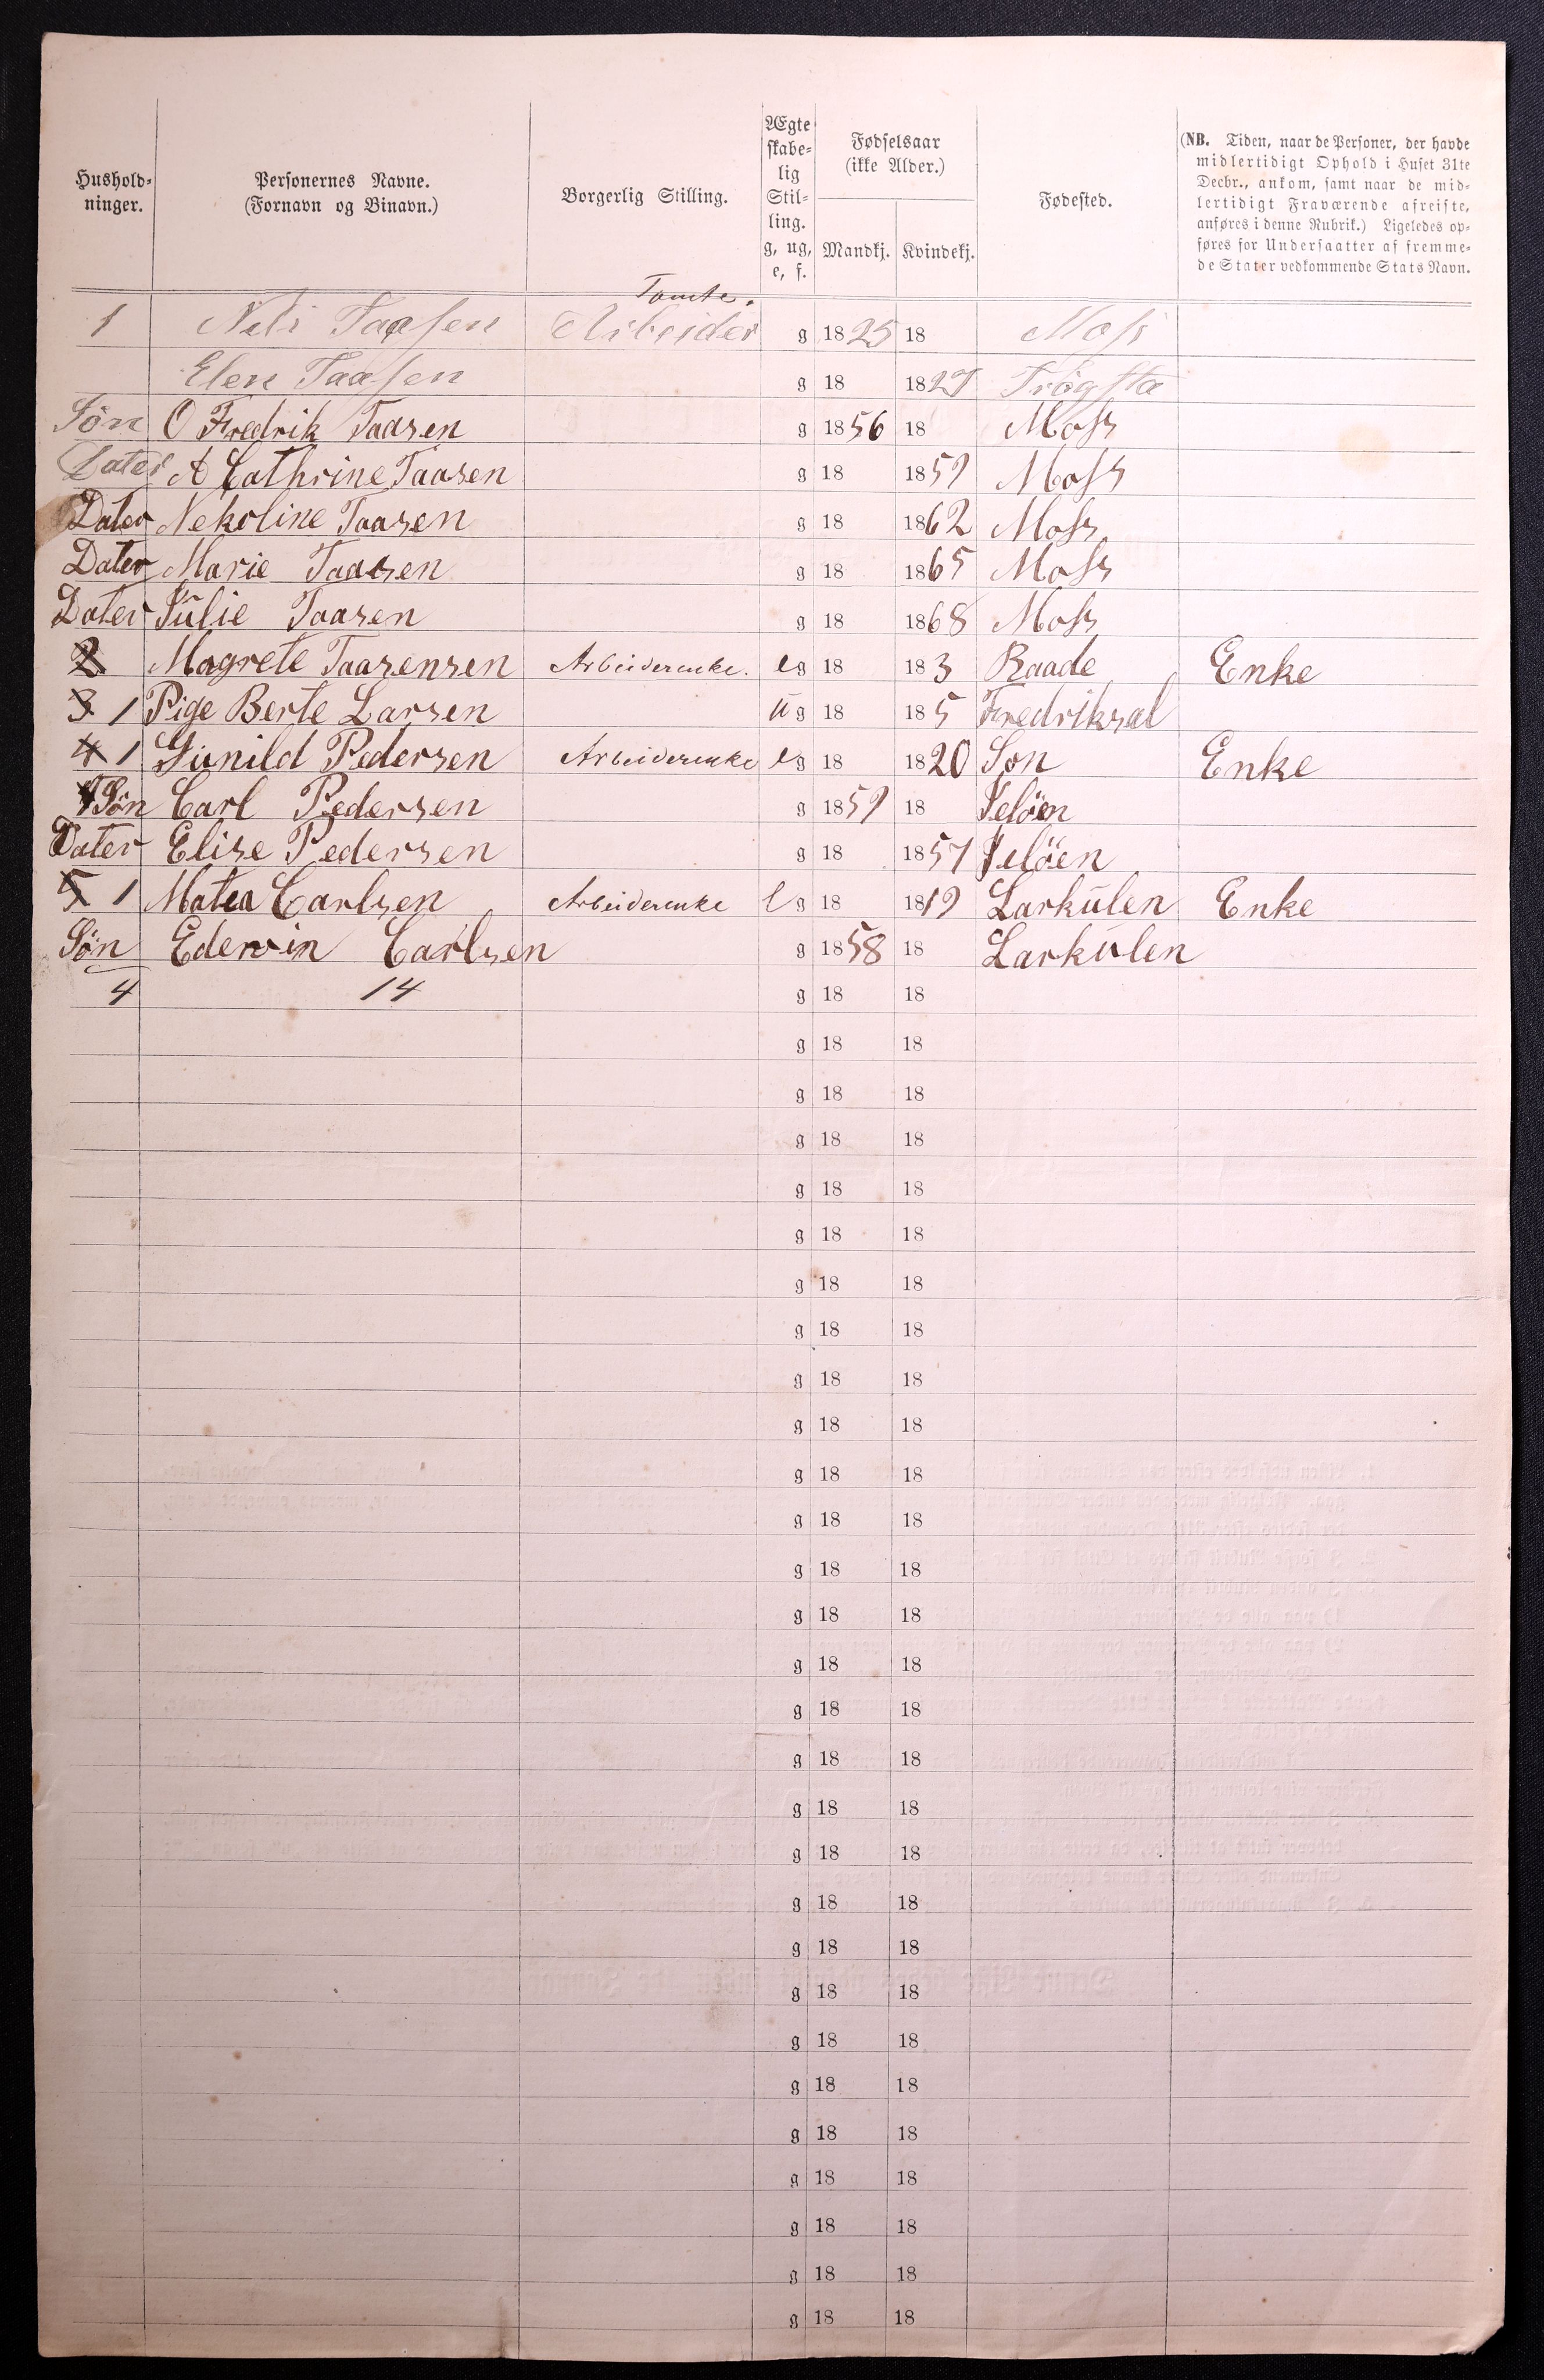 Hushold-
ninger.
Personernes Navne.
(Fornavn og Binavn.)
Borgerlig Stilling.
Ægte
skabe-
lig
Stil-
ling.
g, ug,
e, f.
Fødselsaar
(ikke Alder.)
Mandkj. Kvindekj.
Fødested.
(NB. Tiden, naar de Personer, der havde
midlertidigt Ophold i Huset 31te
Decbr., ankom, samt naar de mid-
lertidigt Fraværende afreiste,
anføres i denne Rubrik.) Ligeledes op-
føres for Undersaatter af fremme-
de Stater vedkommende Stats Navn.
Tomte.
1 Nils Taasen Arbeider g 1825 18 Moss
Elen Taasen g 18 1827 Trøgsta
Søn O Fredrik Taasen g 1856 18 Moss
Dater A Cathrine Taasen g 18 1859 Moss
Dater Nekoline Taasen g 18 1862 Moss
Dater Marie Taasen g 18 1865 Moss
Dater Julie Taasen g 18 1868 Moss
2 Magrete Taasensen Arbeiderenke. eg 18 183 Raade Enke
3 1 Pige Berte Larsen ug 18 185 Fredriksal
4 1 Gunild Pedersen Arbeiderenke eg 18 1820 Son Enke
Søn Carl Pedersen g 1859 18 Jeløen
Dater Elise Pedersen g 18 1857 Jeløen
5 1 Matea Carlsen Arbeiderenke eg 18 1819 Larkulen Enke
Søn Edervin Carlsen g 1858 18 Larkulen
4 14 g 18 18
g 18 18
g 18 18
g 18 18
g 18 18
g 18 18
g 18 18
g 18 18
g 18 18
g 18 18
g 18 18
g 18 18
g 18 18
g 18 18
g 18 18
g 18 18
g 18 18
g 18 18
g 18 18
g 18 18
g 18 18
g 18 18
g 18 18
g 18 18
g 18 18
g 18 18
g 18 18
g 18 18
g 18 18